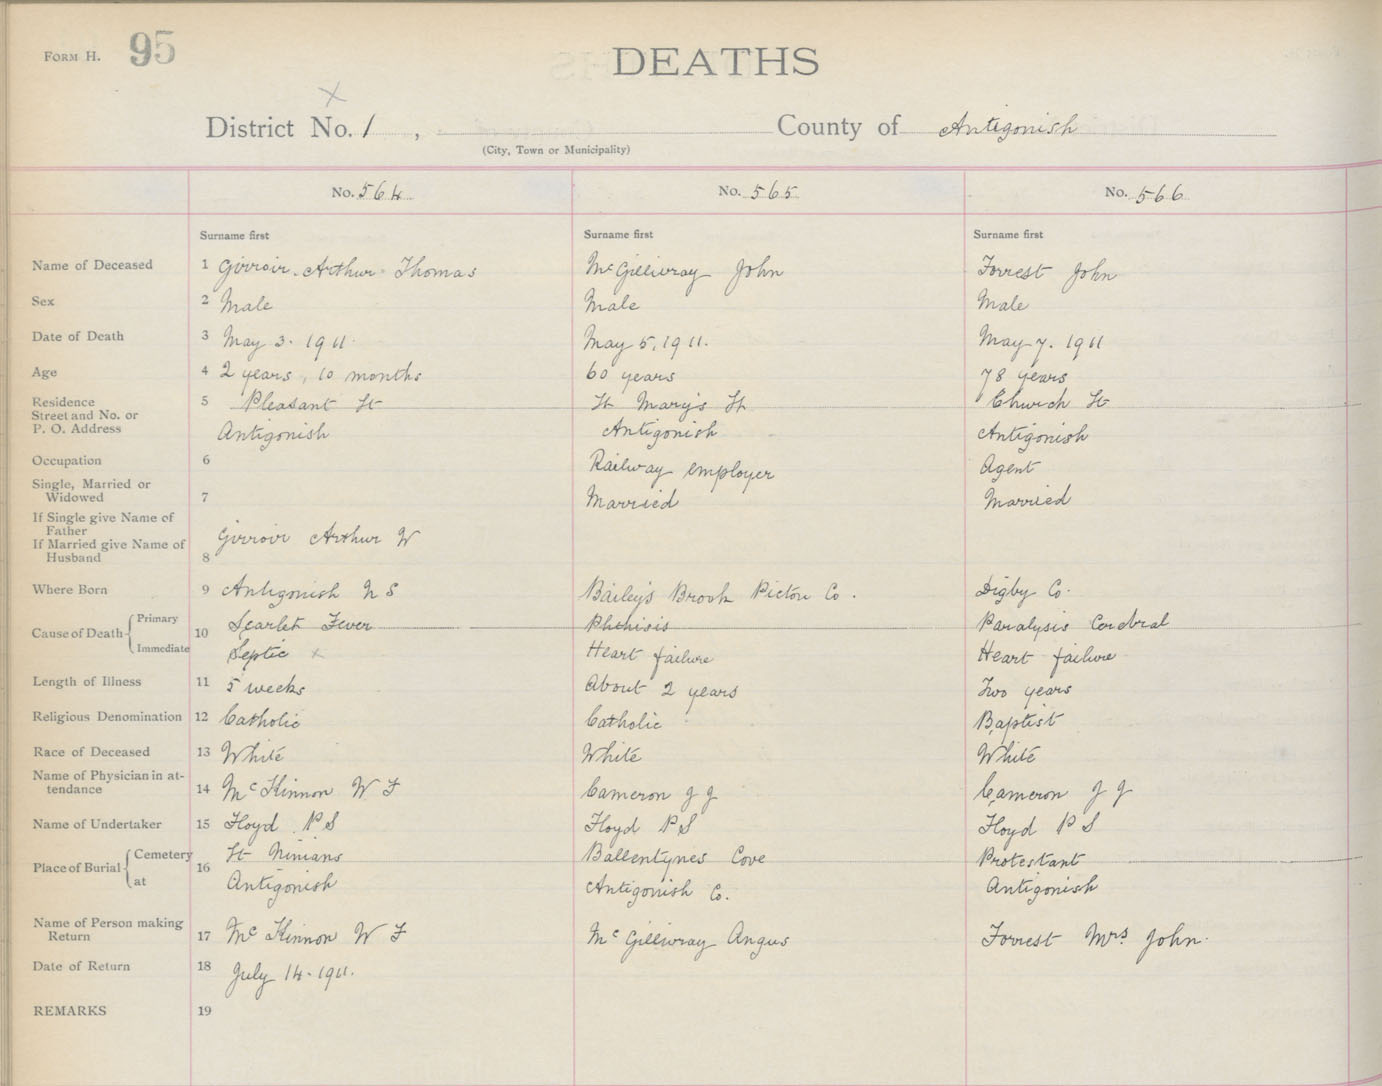 Form H. 95
DEATHS
x
District No. 1 , County of Antigonish
(City, Town or Municipality)
No. 564 No. 565 No. 566
Surname first Surname first Surname first
Name of Deceased 1 Girroir Arthur Thomas McGillivray John Forrest John
Sex 2 Male Male Male
Date of Death 3 May 3. 1911. May 5, 1911. May 7. 1911
Age 4 2 years, 10 months 60 years 78 years
Residence 5 Pleasant St St Mary's St Church St
Street and No. or
P. O. Address Antigonish Antigonish Antigonish
Occupation 6 Railway employer Agent
Single, Married or
Widowed 7 Married Married
If Single give Name of
Father
If Married give Name of Girroir Arthur W
Husband 8
Where Born 9 Antigonish N S Bailey's Brook Pictou Co. Digby Co.
Cause of Death Primary 10 Scarlet Fever Phthisis Paralysis Cerebral
Immediate Septic x Heart failure Heart failure
Length of Illness 11 5 weeks About 2 years Two years
Religious Denomination 12 Catholic Catholic Baptist
Race of Deceased 13 White White White
Name of Physician in at-
tendance 14 McKinnon W F Cameron J J Cameron J J
Name of Undertaker 15 Floyd P S Floyd P S Floyd P S
Place of Burial Cemetery 16 St Ninians Ballentynes Cove Protestant
at Antigonish Antigonish Co. Antigonish
Name of Person making
Return 17 McKinnon W F McGillivray Angus Forrest Mrs John.
Date of Return 18 July 14. 1911.
REMARKS 19